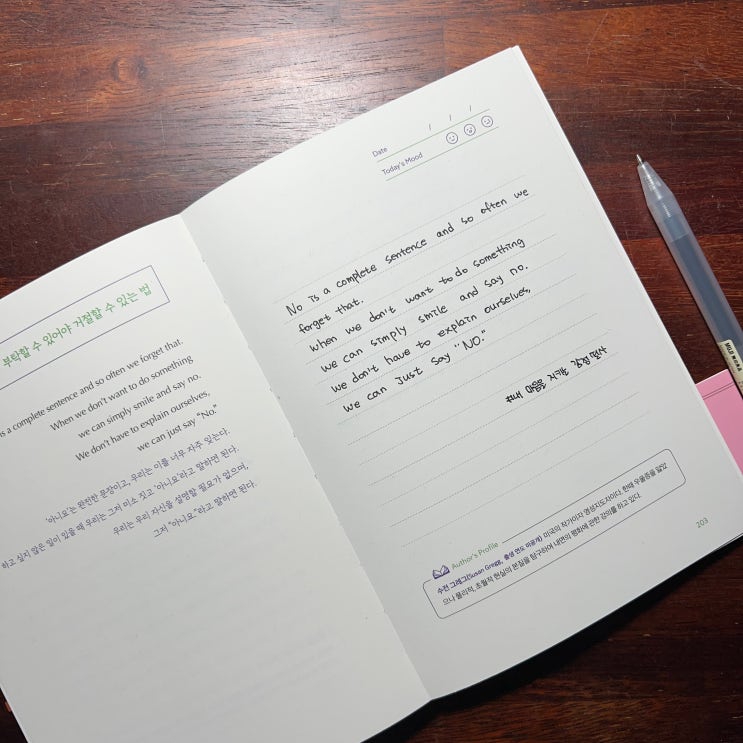 부탁할 수 있어야 거절할 수 있는 법
is a complete sentence and so often we forget that.
When we don't want to do something
we can simply smile and say no.
We don't have to explain ourselves,
we can just say “No.”
'아니요'는 완전한 문장이고, 우리는 이를 너무 자주 잊는다.
하고 싶지 않은 일이 있을 때 우리는 그저 미소 짓고 '아니요'라고 말하면 된다.
우리는 우리 자신을 설명할 필요가 없으며,
그저 “아니요.”라고 말하면 된다.
Date / / /
Today's Mood
No is a complete sentence and so often we
forget that.
when we don't want to do something
we can simply smile and say no.
we don't have to explain ourselves,
we can just say "NO."
#내 마음을 지키는 긍정 필사
Author's Profile
수전 그레그(Susan Gregg, 출생 연도 미공개) 미국의 작가이자 영성지도자이다. 한때 우울증을 앓았
으나 물리적, 초월적 현실의 본질을 탐구하며 내면의 평화에 관한 강의를 하고 있다.
203
MILD